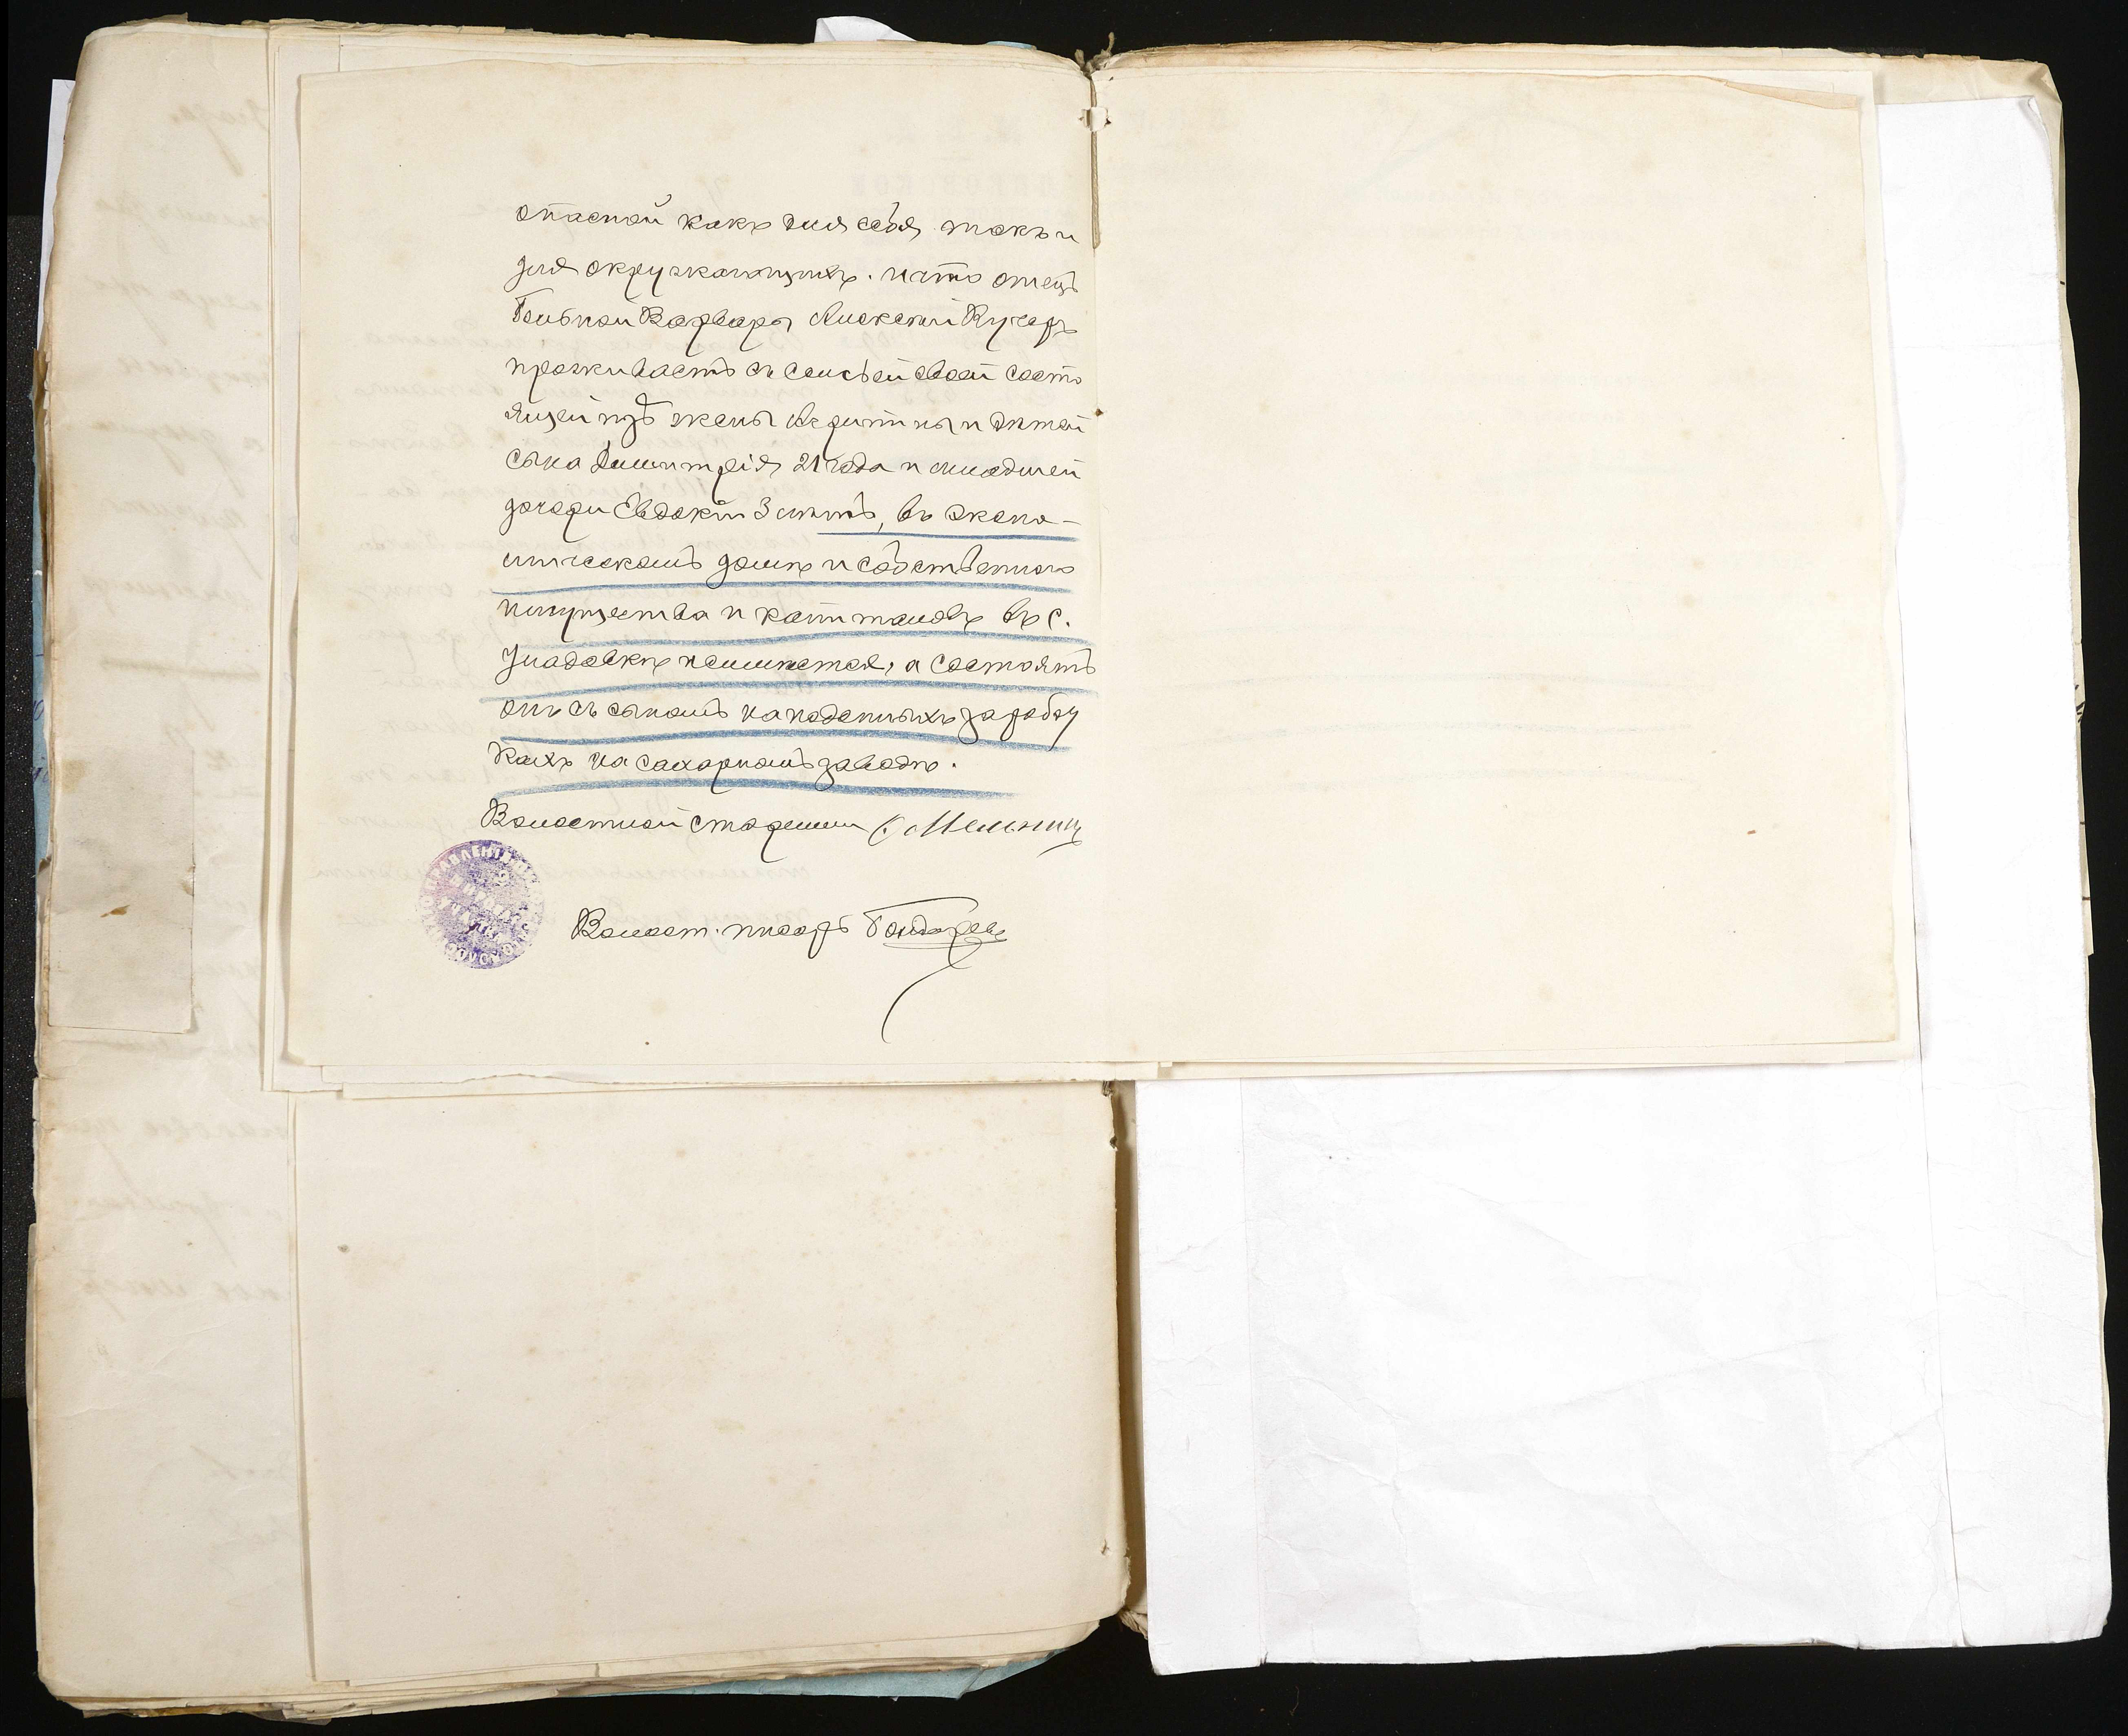 опасной какъ для себя, такъ и
для окружающихъ. и что отецъ
больной Варвары Алексей Кучеръ
проживаетъ съ семьей своей состо
ящей изъ жены и детей
сына Димитрія 21 года и младшей
дочери Евдокіи 3 летъ, въ эконо-
мическомъ доме и собственного
имущества и капиталовъ въ с.
Уладовке не имеется, а состоятъ
они съ сыномъ на поденныхъ заработ
кахъ на сахарномъ заводе.
Волостной старшина Мельникъ
Волост. писарь Бондаревъ